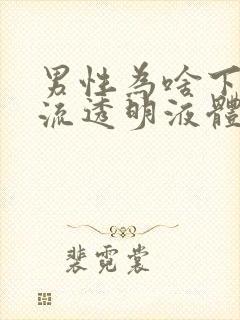 男性為啥下
流透明液體
裴霓裳